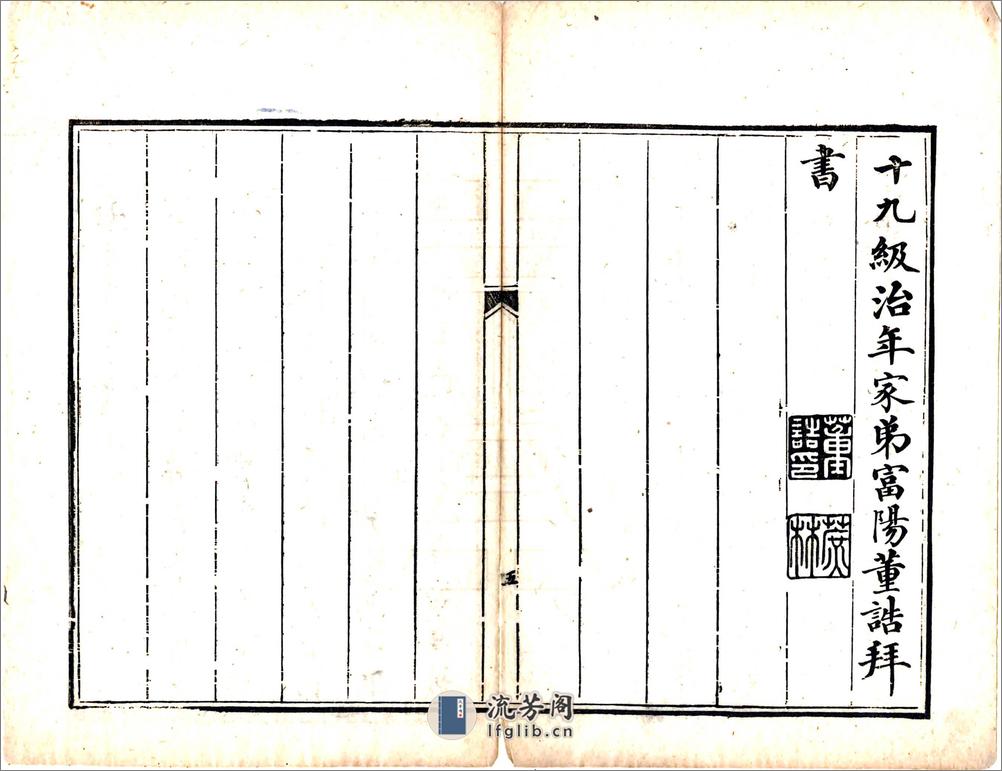 十九級治年家弟富陽董誥拜
書
董誥印
蔗林
五
流芳阁
lfglib.cn